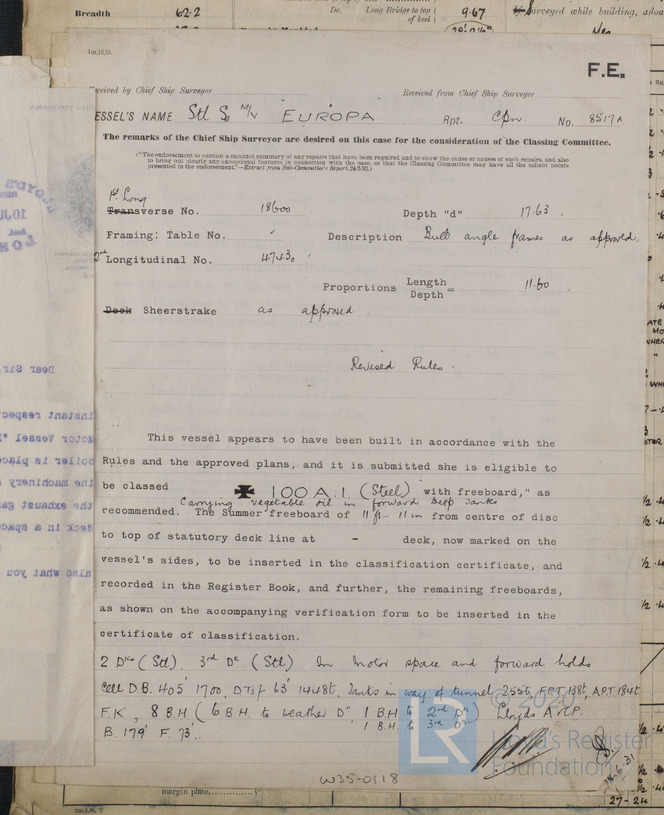 Breadth 62.2 Do. Long Bridge to top of keel 9.67 surveyed while building, afloat
1m,12,15.
F.E.
Received by Chief Ship Surveyor Received from Chief Ship Surveyor
ESSEL'S NAME Stl S. M/V EUROPA Rpt. Cpn No. 8517A
The remarks of the Chief Ship Surveyor are desired on this case for the consideration of the Classing Committee.
("The endorsement to contain a succinct summary of any repairs that have been required and to show the cause or causes of such repairs, and also
to bring out clearly any exceptional features in connection with the case, so that the Classing Committee may have all the salient points
presented in the endorsement."—Extract from Sub-Committee's Report, 24/5/92.)
1st Long
Transverse No. 18600 Depth "d" 17.63.
Framing: Table No. ✓ Description Built angle frames as approved.
2nd Longitudinal No. 47430
Proportions Length / Depth = 11.60
Deck Sheerstrake as approved
Revised Rules.
This vessel appears to have been built in accordance with the
Rules and the approved plans, and it is submitted she is eligible to
be classed ✠ 100 A.1. (Steel) with freeboard," as
Carrying vegetable oil in forward Deep Tanks
recommended. The Summer freeboard of 11 ft - 11 in from centre of disc
to top of statutory deck line at - deck, now marked on the
vessel's sides, to be inserted in the classification certificate, and
recorded in the Register Book, and further, the remaining freeboards,
as shown on the accompanying verification form to be inserted in the
certificate of classification.
2 Dks (Stl), 3rd Dk (Stl) In motor space and forward holds
Cell D.B. 405' 1700, DTsf 63' 1448t, Tanks in way of tunnel 255t, FPT 138t, APT 184t
F.K, 8 B.H (6 B.H. to weather Dk 1 B.H to 2nd Dk) Lloyds A & C.P.
1 B.H. to 3rd Dk
B. 179' F. 73'.
LR
© 2020
Lloyd's Register
Foundation
18.6.31
W35-0118
margin plate
27-24
Dear Sir,
instant respect
Motor Vessel "
boiler is place
the machinery
the exhaust ga
deck in a spac
also what you
LLOYD'S
10 JU
LON